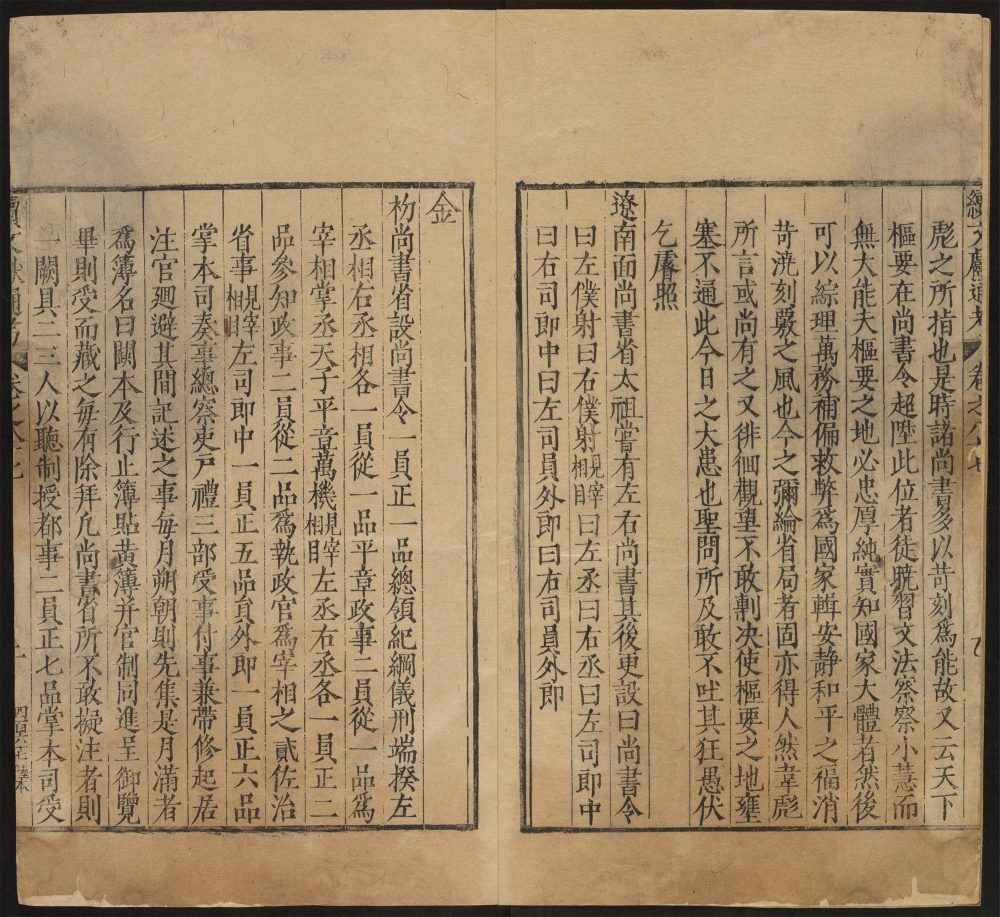 續文獻通考 卷之八十七
彪之所指也是時諸尚書多以苛刻爲能故又云天下
樞要在尚書令超陞此位者徒曉習文法察察小慧而
無大能夫樞要之地必忠厚純實知國家大體者然後
可以綜理萬務補偏救弊爲國家輯安静和平之福消
苛澆刻覈之風也今之彌綸省局者固亦得人然韋彪
所言或尚有之又徘徊觀望不敢剸决使樞要之地壅
塞不通此今日之大患也聖問所及敢不吐其狂愚伏
乞膚照
遼南面尚書省太祖嘗有左右尚書其後更設曰尚書令
曰左僕射曰右僕射見宰相目曰左丞曰右丞曰左司郎中
曰右司郎中曰左司員外郎曰右司員外郎
金
初尚書省設尚書令一員正一品總領紀綱儀刑端揆左
丞相右丞相各一員從一品平章政事二員從一品爲
宰相掌丞天子平章萬機見宰相目左丞右丞各一員正二
品參知政事二員從二品爲執政官爲宰相之貳佐治
省事見宰相目左司郎中一員正五品員外郎一員正六品
掌本司奏事總察吏戶禮三部受事付事兼帶修起居
注官廻避其間記述之事每月朔朝則先集是月滿者
爲簿名曰闕本及行止簿貼黃簿并官制同進呈御覽
畢則受而藏之每有除拜凡尚書省所不敢擬注者則
一闕具二三人以聽制授都事二員正七品掌本司受
續文獻通考 卷之八十七